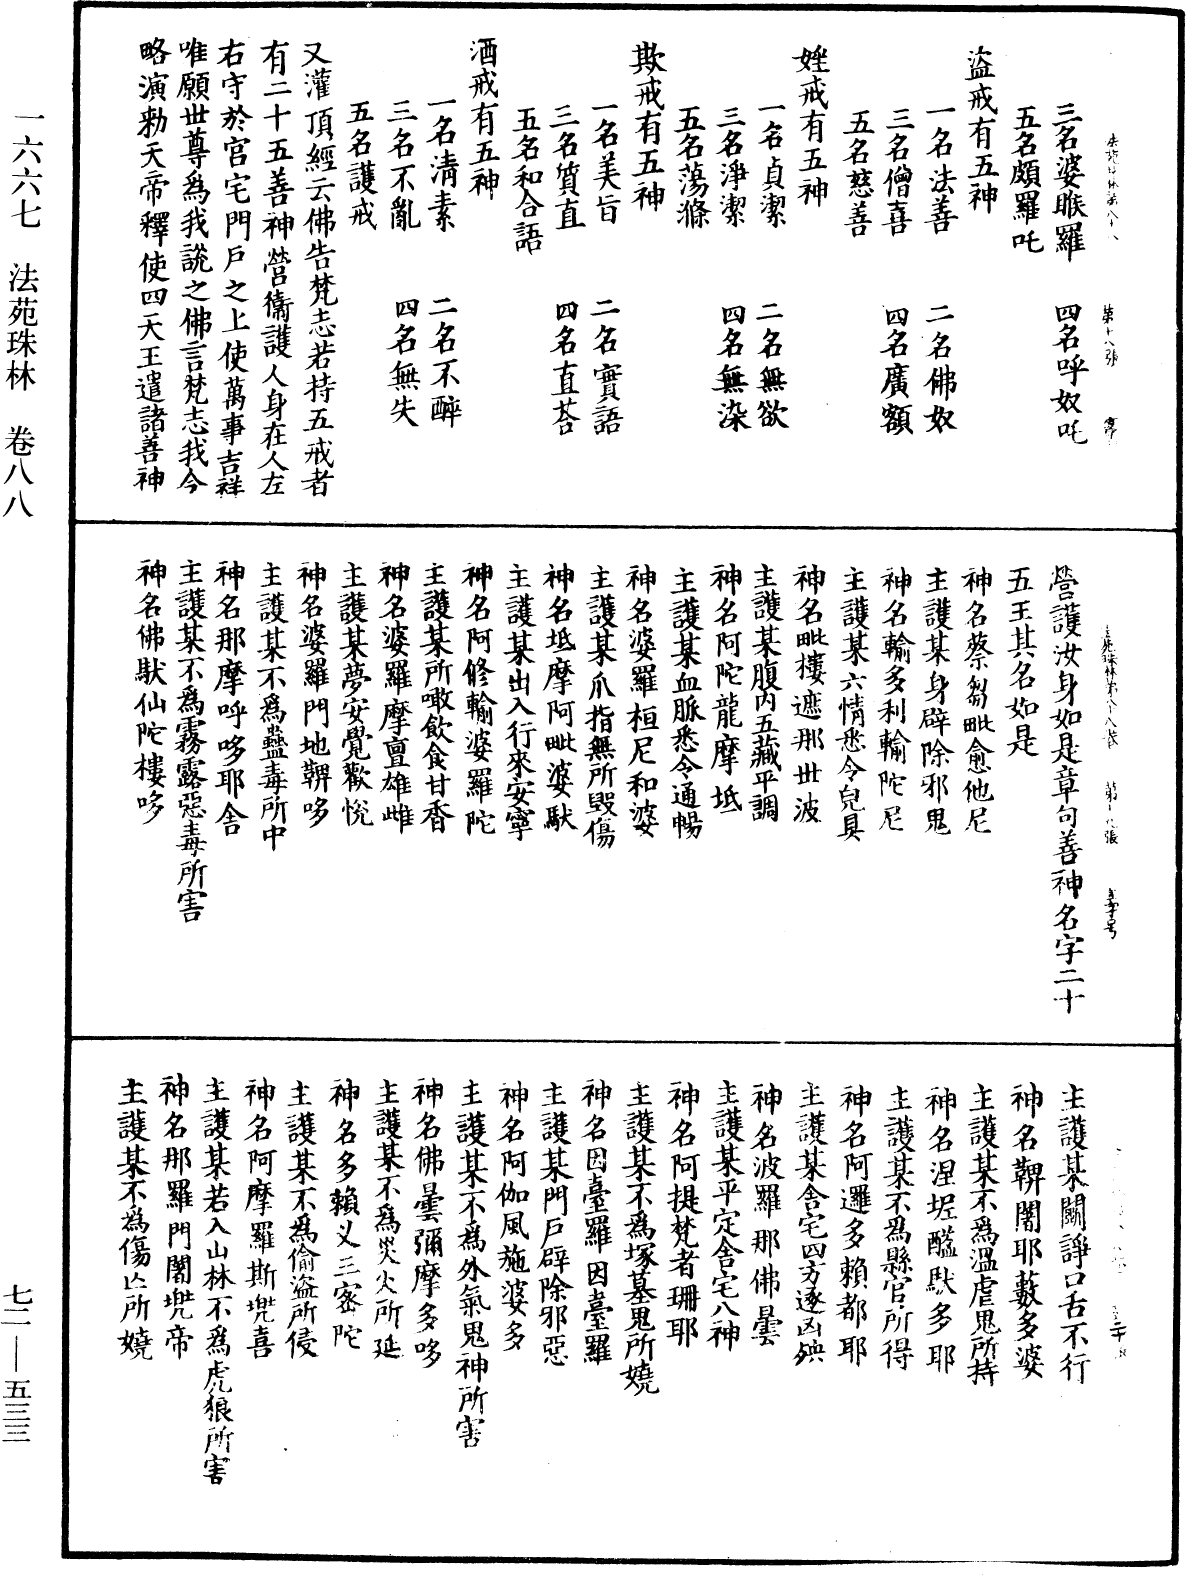 三名婆睺羅　四名呼奴吒
五名頗羅吒
盜戒有五神
一名法善　二名佛奴
三名僧喜　四名廣額
五名慈善
婬戒有五神
一名貞潔　二名無欲
三名淨潔　四名無染
五名蕩滌
欺戒有五神
一名美旨　二名實語
三名質直　四名直荅
五名和合語
酒戒有五神
一名清素　二名不醉
三名不亂　四名無失
五名護戒
又灌頂經云佛告梵志若持五戒者
有二十五善神營衞護人身在人左
右守於宫宅門戶之上使萬事吉祥
唯願世尊爲我說之佛言梵志我今
略演勑天帝釋使四天王遣諸善神
營護汝身如是章句善神名字二十
五王其名如是
神名蔡芻毗愈他尼
主護某身辟除邪鬼
神名輸多利輸陀尼
主護某六情悉令皃具
神名毗樓遮那世波
主護某腹內五藏平調
神名阿陀龍摩坻
主護某血脈悉令通暢
神名婆羅桓尼和婆
主護某爪指無所毀傷
神名坻摩阿毗婆馱
主護某出入行來安寧
神名阿修輸婆羅陀
主護某所噉飲食甘香
神名婆羅摩亶雄雌
主護某夢安覺歡悅
神名婆羅門地鞞哆
主護某不爲蠱毒所中
神名那摩呼哆耶舍
主護某不爲霧露惡毒所害
神名佛馱仙陀樓哆
主護某鬭諍口舌不行
神名鞞闍耶藪多婆
主護某不爲溫虐鬼所持
神名涅坭醯馱多耶
主護某不爲縣官所得
神名阿邏多賴都耶
主護某舍宅四方逐凶殃
神名波羅那佛曇
主護某平定舍宅八神
神名阿提梵者珊耶
主護某不爲塚墓鬼所嬈
神名因臺羅因臺羅
主護某門戶辟除邪惡
神名阿伽風施婆多
主護某不爲外氣鬼神所害
神名佛曇彌摩多哆
主護某不爲災火所延
神名多賴乂三密陀
主護某不爲偷盜所侵
神名阿摩羅斯兠喜
主護某若入山林不爲虎狼所害
神名那羅門闍兠帝
主護某不爲傷亡所嬈
一六六七　法苑珠林　卷八八
七二—五三三